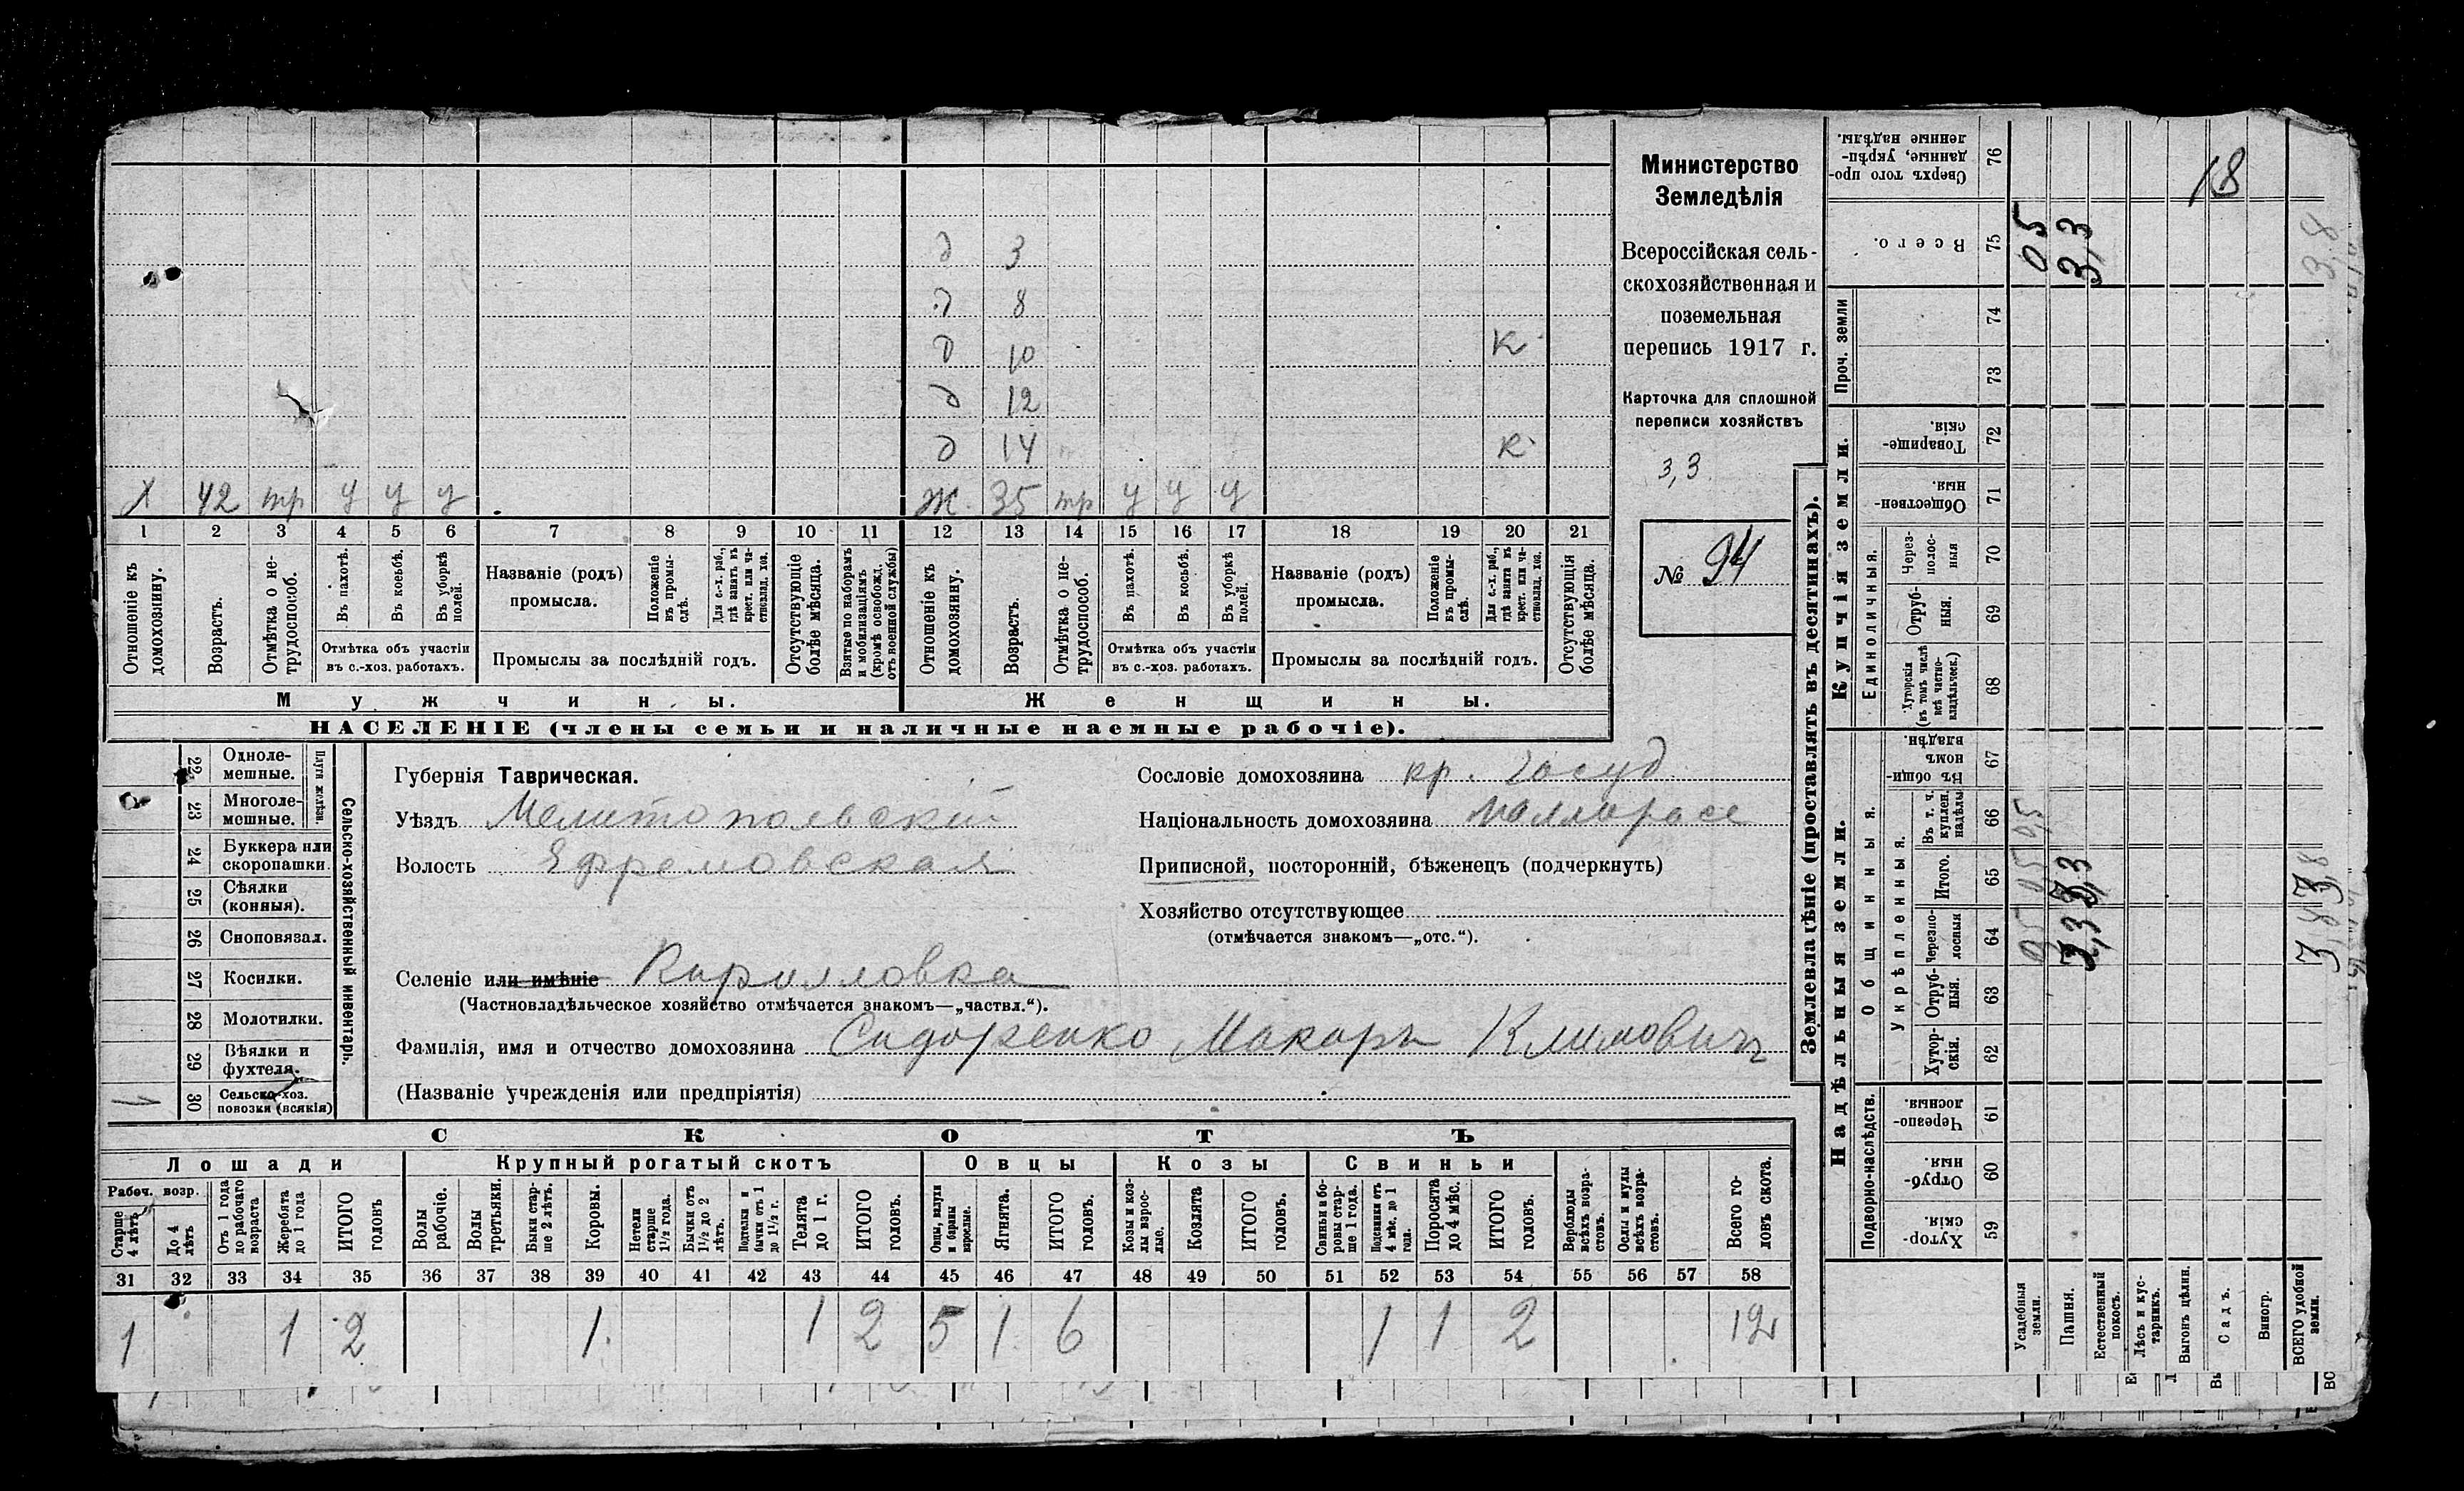 д 3
д 8
д 10 К
д 12
д 14 К
Х 42 тр у у у Ж. 35 тр у у у
1 2 3 4 5 6 7 8 9 10 11 12 13 14 15 16 17 18 19 20 21
Отношеніе къ домохозяину.
Возрастъ.
Отмѣтка о нетрудоспособ.
Въ пахотѣ.
Въ косьбѣ.
Въ уборкѣ полей.
Отмѣтка объ участіи
въ с.-хоз. работахъ.
Названіе (родъ)
промысла.
Положеніе въ промыслѣ.
Для с.-х. раб., гдѣ занятъ въ крест. или частновлад. хоз.
Промыслы за послѣдній годъ.
Отсутствующіе болѣе мѣсяца.
Взятые по наборамъ и мобилизаціямъ (кромѣ освобожд. отъ военной службы)
Отношеніе къ домохозяину.
Возрастъ.
Отмѣтка о нетрудоспособ.
Въ пахотѣ.
Въ косьбѣ.
Въ уборкѣ полей.
Отмѣтка объ участіи
въ с.-хоз. работахъ.
Названіе (родъ)
промысла.
Положеніе въ промыслѣ.
Для с.-х. раб., гдѣ занята въ крест. или частновлад. хоз.
Промыслы за послѣдній годъ.
Отсутствующія болѣе мѣсяца.
Мужчины. Женщины.
НАСЕЛЕНІЕ (члены семьи и наличные наемные рабочіе).
Министерство
Земледѣлія
Всероссійская сель-
скохозяйственная и
поземельная
перепись 1917 г.
Карточка для сплошной
переписи хозяйствъ
3,3
№ 94
Сельско-хозяйственный инвентарь.
Плуги желѣзн.
22 Одноле-
мешные.
23 Многоле-
мешные.
24 Буккера или
скоропашки.
25 Сѣялки
(конныя).
26 Сноповязал.
27 Косилки.
28 Молотилки.
29 Вѣялки и
фухтеля.
30 Сельско-хоз.
повозки (всякія)
Губернія Таврическая.
Уѣздъ Мелитопольскій
Волость Ефремовская
Селеніе или имѣніе Кирилловка
(Частновладѣльческое хозяйство отмѣчается знакомъ—„частвл.“).
Фамилія, имя и отчество домохозяина Сидоренко Макаръ Климовичъ
(Названіе учрежденія или предпріятія)
Сословіе домохозяина кр. Госуд
Національность домохозяина маллорасс
Приписной, посторонній, бѣженецъ (подчеркнуть)
Хозяйство отсутствующее
(отмѣчается знакомъ—„отс.“).
СКОТЪ
Лошади Крупный рогатый скотъ Овцы Козы Свиньи
Рабоч. возр.
Старше 4 лѣтъ
До 4 лѣтъ
Отъ 1 года до рабочаго возраста
Жеребята до 1 года
ИТОГО головъ
Волы рабочіе.
Волы третьяки.
Быки старше 2 лѣтъ.
Коровы.
Нетели старше 1½ года.
Бычки отъ 1½ до 2 лѣтъ.
Подтелки и бычки отъ 1 до 1½ г.
Телята до 1 г.
ИТОГО головъ.
Овцы, валухи и бараны взрослые.
Ягнята.
ИТОГО головъ.
Козы и козлы взрослые.
Козлята
ИТОГО головъ.
Свиньи и боровы старше 1 года.
Подсвинки отъ 4 мѣс. до 1 года.
Поросята до 4 мѣс.
ИТОГО головъ.
Верблюды всѣхъ возрастовъ.
Ослы и мулы всѣхъ возрастовъ.
Всего головъ скота.
31 32 33 34 35 36 37 38 39 40 41 42 43 44 45 46 47 48 49 50 51 52 53 54 55 56 57 58
1 1 2 1 1 2 5 1 6 1 1 2 12
Землевладѣніе (проставлять въ десятинахъ).
Купчія земли.
Надѣльныя земли.
Сверхъ того проданные, укрѣпленные надѣлы. 76
Всего. 75
Проч. земли 74 73
Товарищескія. 72
Общественныя. 71
Единоличныя.
Черезполосныя 70
Отрубныя. 69
Хуторскія (въ томъ числѣ всѣ частновладѣльческ.) 68
Общинныя.
Въ общинномъ владѣн. 67
Укрѣпленныя.
Въ т. ч. куплен. надѣлы 66
Итого. 65
Черезполосныя 64
Отрубныя. 63
Хуторскія. 62
Подворно-наслѣдств.
Черезполосныя. 61
Отрубныя. 60
Хуторскія. 59
Усадебныя земли.
Пашня.
Естественный покосъ.
Лѣсъ и кустарникъ.
Выгонъ цѣлин.
Садъ.
Виногр.
ВСЕГО удобной земли.
18
05
3,3
3,8
05 05 0,5
3,3 3,3
3,8 3,8